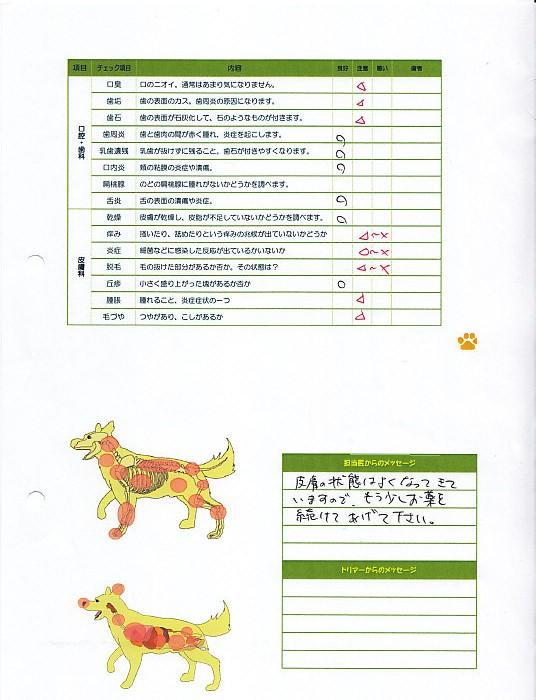 項目 チェック項目 内容 良好 注意 悪い 備考
口腔・歯科
口臭 口のニオイ。通常はあまり気になりません。 △
歯垢 歯の表面のカス。歯周炎の原因になります。 △
歯石 歯の表面が石灰化して、石のようなものが付きます。 △
歯周炎 歯と歯肉の間が赤く腫れ、炎症を起こします。 ○
乳歯遺残 乳歯が抜けずに残ること。歯石が付きやすくなります。 ○
口内炎 頬の粘膜の炎症や潰瘍。 ○
扁桃腺 のどの扁桃腺に腫れがないかどうかを調べます。
舌炎 舌の表面の潰瘍や炎症。 ○
皮膚科
乾燥 皮膚が乾燥し、皮脂が不足していないかどうかを調べます。 ○
痒み 掻いたり、舐めたりという痒みの兆候が出ていないかどうか △~×
炎症 細菌などに感染した反応が出ているかいないか ○~×
脱毛 毛の抜けた部分があるか否か。その状態は? △~×
丘疹 小さく盛り上がった塊があるか否か ○
腫脹 腫れること。炎症症状の一つ △
毛づや つやがあり、こしがあるか △
担当医からのメッセージ
皮膚の状態はよくなってきて
いますので、もう少しお薬を
続けてあげて下さい。
トリマーからのメッセージ